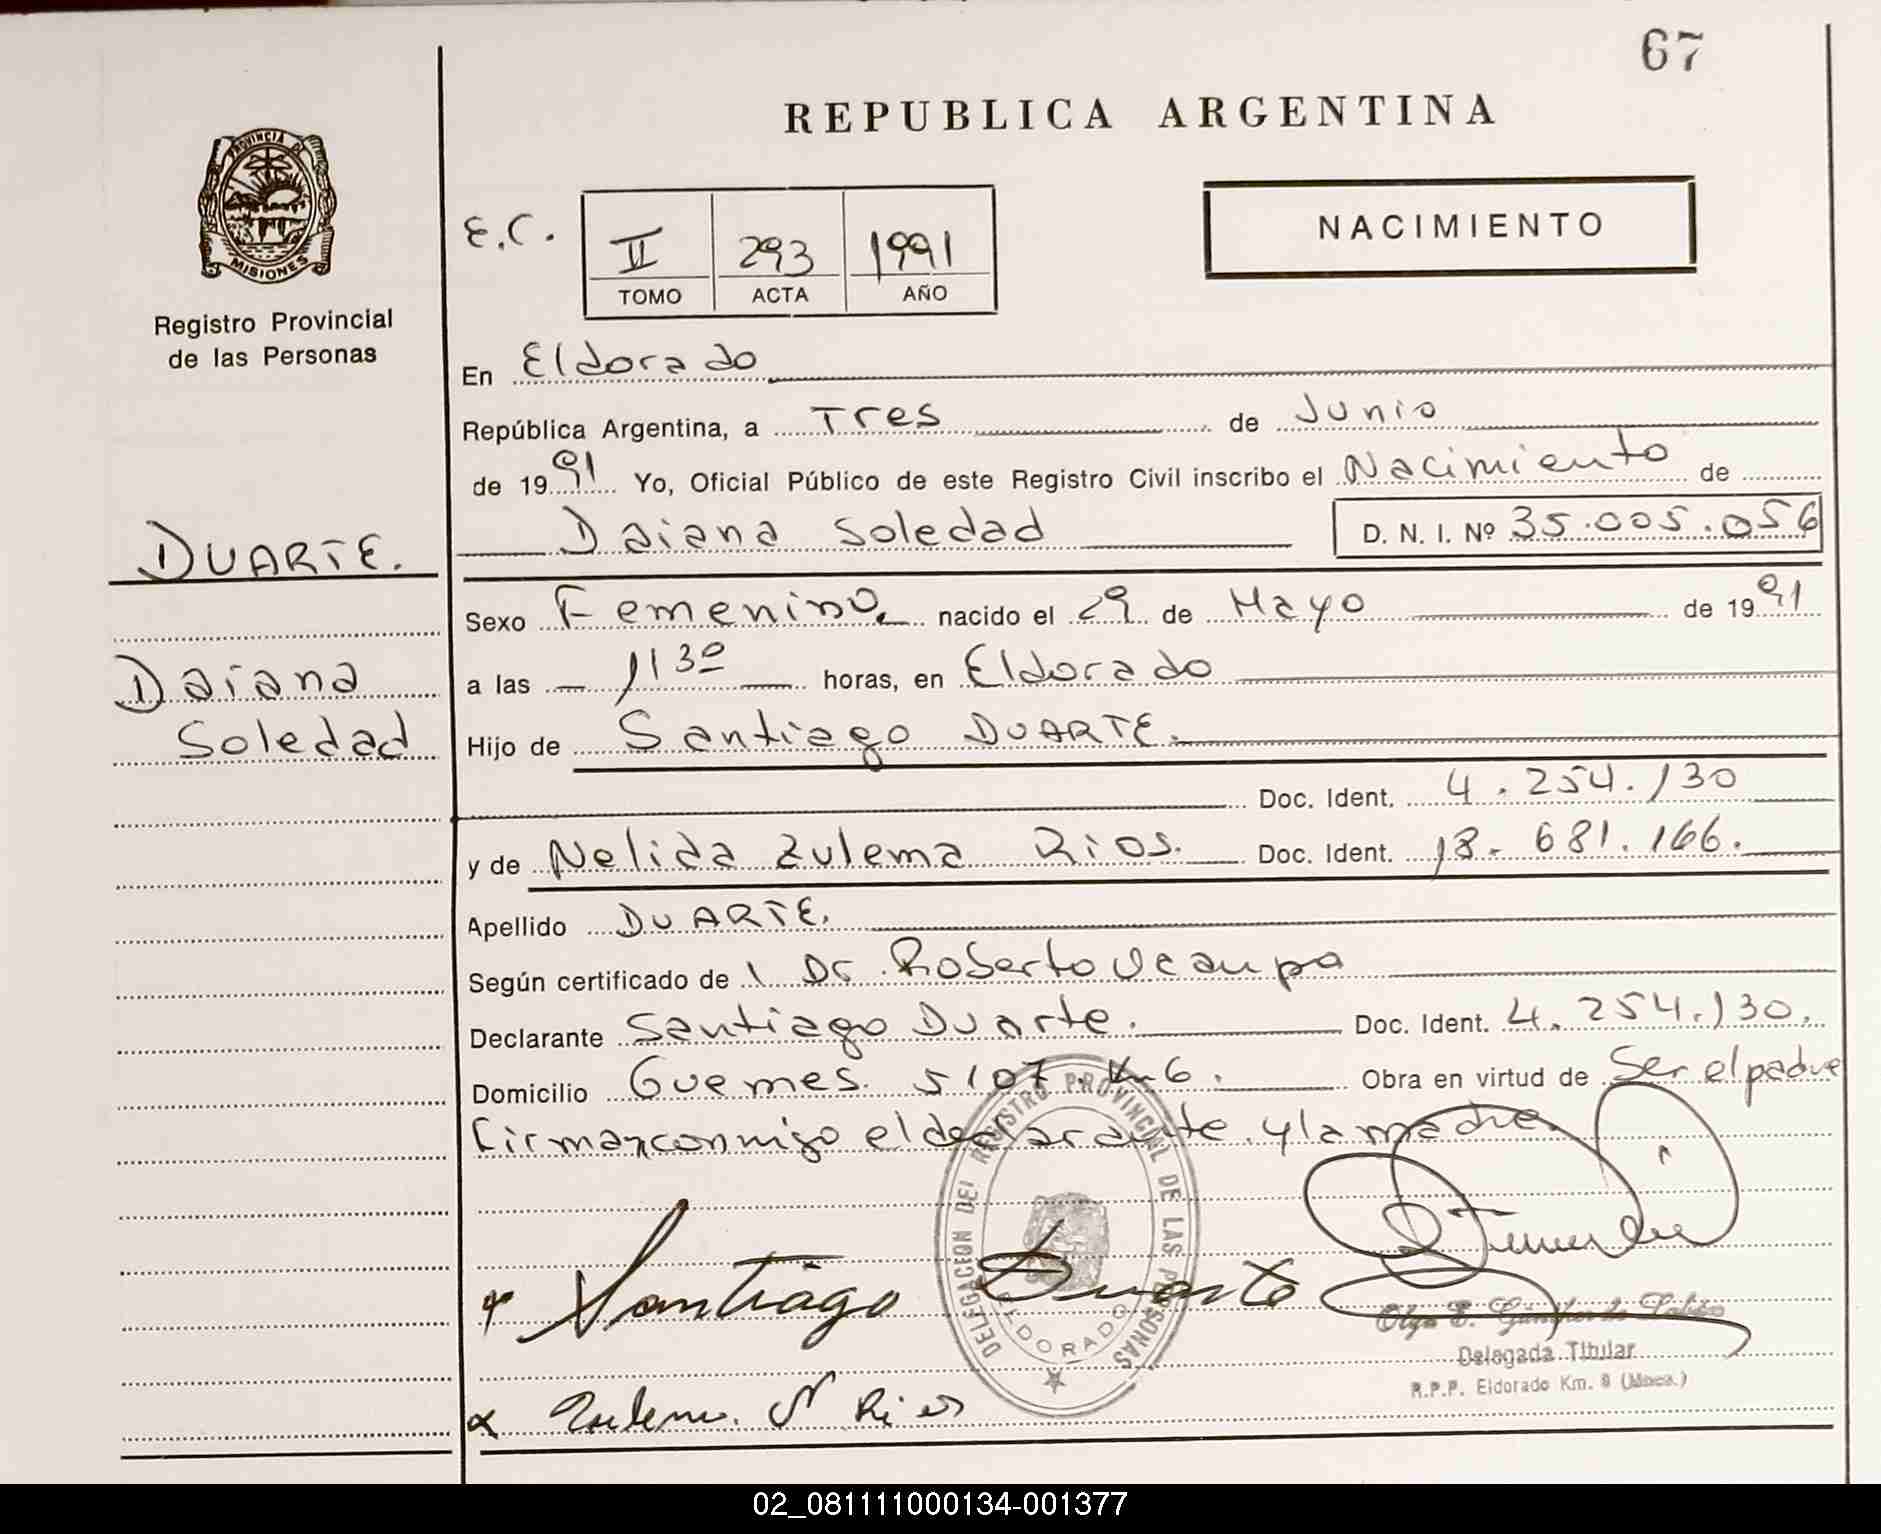 67
REPUBLICA ARGENTINA
PROVINCIA DE
MISIONES
Registro Provincial
de las Personas
E.C.
II 293 1991
TOMO ACTA AÑO
NACIMIENTO
En Eldorado
República Argentina, a Tres de Junio
de 1991 Yo, Oficial Público de este Registro Civil inscribo el Nacimiento de
Daiana Soledad D. N. I. Nº 35.005.056
DUARTE.
Daiana
Soledad
Sexo Femenino nacido el 29 de Mayo de 1991
a las 11 30 horas, en Eldorado
Hijo de Santiago DUARTE.
Doc. Ident. 4.254.130
y de Nelida Zulema Rios. Doc. Ident. 18.681.166.
Apellido DUARTE.
Según certificado de Dr. Roberto Ocampo
Declarante Santiago Duarte. Doc. Ident. 4.254.130.
Domicilio Guemes. 5107. Km 6. Obra en virtud de Ser el padre
Firman conmigo el declarante y la madre
DELEGACION DEL REGISTRO PROVINCIAL DE LAS PERSONAS
ELDORADO
Santiago Duarte
Olga E.
Delegada Titular
R.P.P. Eldorado Km. 9 (Mnes.)
Zulema N Rios
02_081111000134-001377